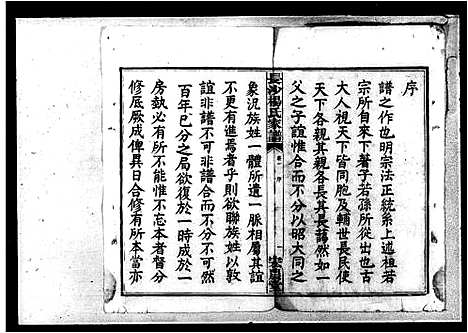 序
譜之作也明宗法正統系上述祖若
宗所自來下著子若孫所從出也古
大人視天下皆同胞及輔世長民使
天下各親其親各長其長藹然如一
父之子誼惟合而不分以昭大同之
長沙楊氏家譜 卷一 序
象況族姓一體所遺一脈相屬其誼
不更有進焉者乎則欲聯族姓以敦
誼非譜不可非譜合而不分不可然
百年已分之局欲復於一時成於一
房執必有所不能惟不忘本者督分
修底厥成俾異日合修有所本當亦